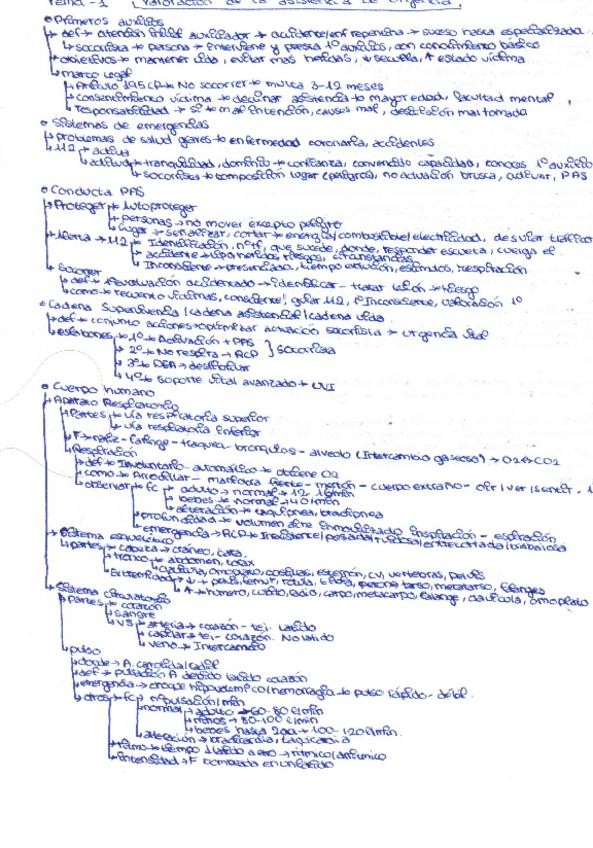 Tema -1 Valoración de la asistencia de urgencia.
• Primeros auxilios
↳ def → atención inicial auxiliador → accidente/enf repentina → suceso hasta especializada.
↳ socorrista → persona → interviene y presta 1º auxilios, con conocimiento básico
↳ objetivos → mantener vida, evitar más heridas, ↓ secuela, ↑ estado víctima
↳ marco legal
↳ Artículo 195 CP → No socorrer → multa 3-12 meses
↳ consentimiento víctima → declinar asistencia → mayor edad, facultad mental
↳ responsabilidad → si → mal intención, causos mal, decisión mal tomada
• Sistemas de emergencias
↳ problemas de salud graves → enfermedad coronaria, accidentes
↳ 112 → activa
↳ actitud → tranquilidad, dominio → confianza, convencido capacidad, conocer 1º auxilio
↳ socorrista → composición lugar (peligros), no actuación brusca, activar, PAS
• Conducta PAS
↳ Proteger → Autoproteger
↳ personas → no mover excepto peligro
↳ lugar → señalizar, cortar → energía/combustible/electricidad, desviar tráfico
↳ Alerta → 112 → Identificación, nº tf, que sucede, donde, responder escueta, cuelga él.
↳ accidente → heridos, riesgos, circunstancias
↳ Inconsciente → presenciada, tiempo evolución, estímulos, respiración
↳ Socorrer
↳ def → 1º evaluación accidentado → identificar - tratar lesión → riesgo
↳ como → recuento víctimas, consciente/ gritar 112, 1º Inconsciente, valoración 1º
• Cadena Supervivencia /cadena asistencial /cadena vida
↳ def → conjunto acciones → optimizar actuación socorrista → urgencia vital
↳ eslabones → 1º → Activación + PAS
↳ 2º → No respira → RCP } Socorrista
↳ 3º → DEA → desfibrilar
↳ 4º → Soporte vital avanzado + UVI
• Cuerpo humano
↳ Aparato Respiratorio
↳ Partes → vía respiratoria superior
↳ vía respiratoria inferior
↳ F → nariz - faringe - traquea - bronquios - alveolo (Intercambio gaseoso) → O2 → CO2
↳ Respiración
↳ def → Involuntario - automático → obtiene O2
↳ como → Arrodillar - manfobra frente - mentón - cuerpo extraño - oír/ver/sentir - 1
↳ observar → fc → adulto → normal → 12-16/min
↳ bebes → normal → 40/min
↳ alteración → taquipnea, bradipnea
↳ profundidad → volumen aire inmovilizado inspiración - espiración
↳ emergencia → RCP → Inexistente/pesada/ruidosa/entrecortada/dolorosa
↳ Sistema esquelético
↳ partes → cabeza → cráneo, cara.
↳ tronco → abdomen, torax
↳ clavícula, omoplato, costillas, esternón, CV, vertebras, pelvis
↳ Extremidad → ↓ → pelvis, femur, rotula, tibia, peroné tarso, metatarso, falanges
↳ ↑ → humero, cubito, radio, carpo, metacarpo, falange, clavícula, omoplato
↳ Sistema circulatorio
↳ partes → corazón
↳ sangre
↳ VS → arteria → corazón - tej. Latido
↳ capilar → tej - corazón. No latido
↳ vena → Intercambio
↳ pulso
↳ donde → A. carotida/radial
↳ def → pulsación A debido latido corazón
↳ emergencia → choque hipovolemico/hemorragia → pulso rápido - débil.
↳ otros → fc → nº pulsación/min
↳ normal → adulto → 60-80 l/min
↳ niños → 80-100 l/min
↳ bebes hasta 2años → 100-120 l/min.
↳ alteración → bradicardia, taquicardia
↳ ritmo → tiempo 1 latido a otro → rítmico/arrítmico
↳ intensidad → F bombeada en un latido